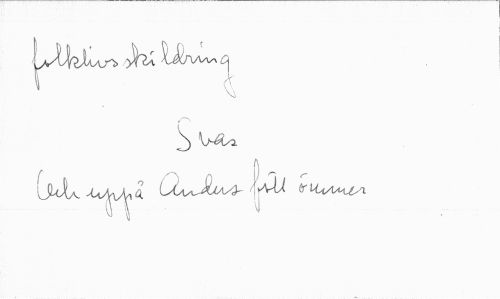 folklivsskildring
Svas
Och uppå Anders föll ömmer